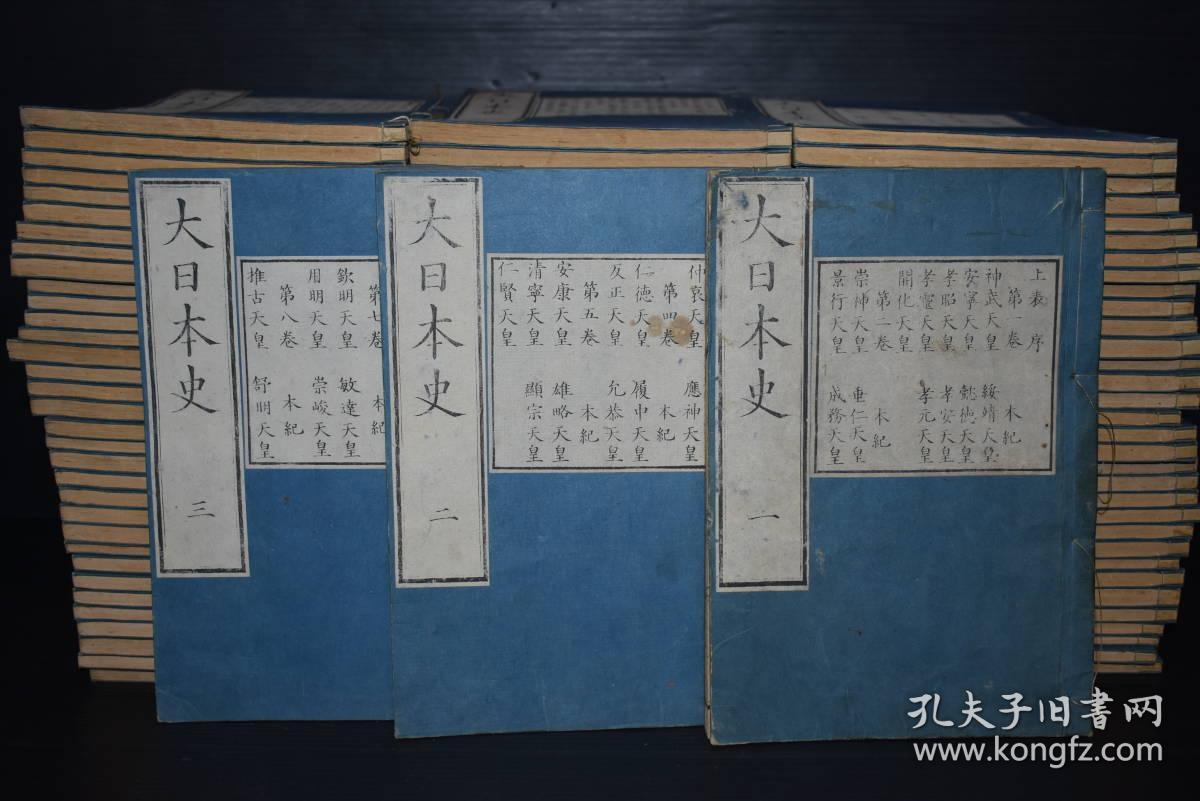 大日本史 一
上表 序
第一卷 本紀
神武天皇 綏靖天皇
安寧天皇 懿德天皇
孝昭天皇 孝安天皇
孝靈天皇 孝元天皇
開化天皇
第二卷 本紀
崇神天皇 垂仁天皇
景行天皇 成務天皇
大日本史 二
仲哀天皇 應神天皇
第四卷 本紀
仁德天皇 履中天皇
反正天皇 允恭天皇
第五卷 本紀
安康天皇 雄略天皇
清寧天皇 顯宗天皇
仁賢天皇
大日本史 三
第七卷 本紀
欽明天皇 敏達天皇
用明天皇 崇峻天皇
第八卷 本紀
推古天皇 舒明天皇
孔夫子旧書网
www.kongfz.com